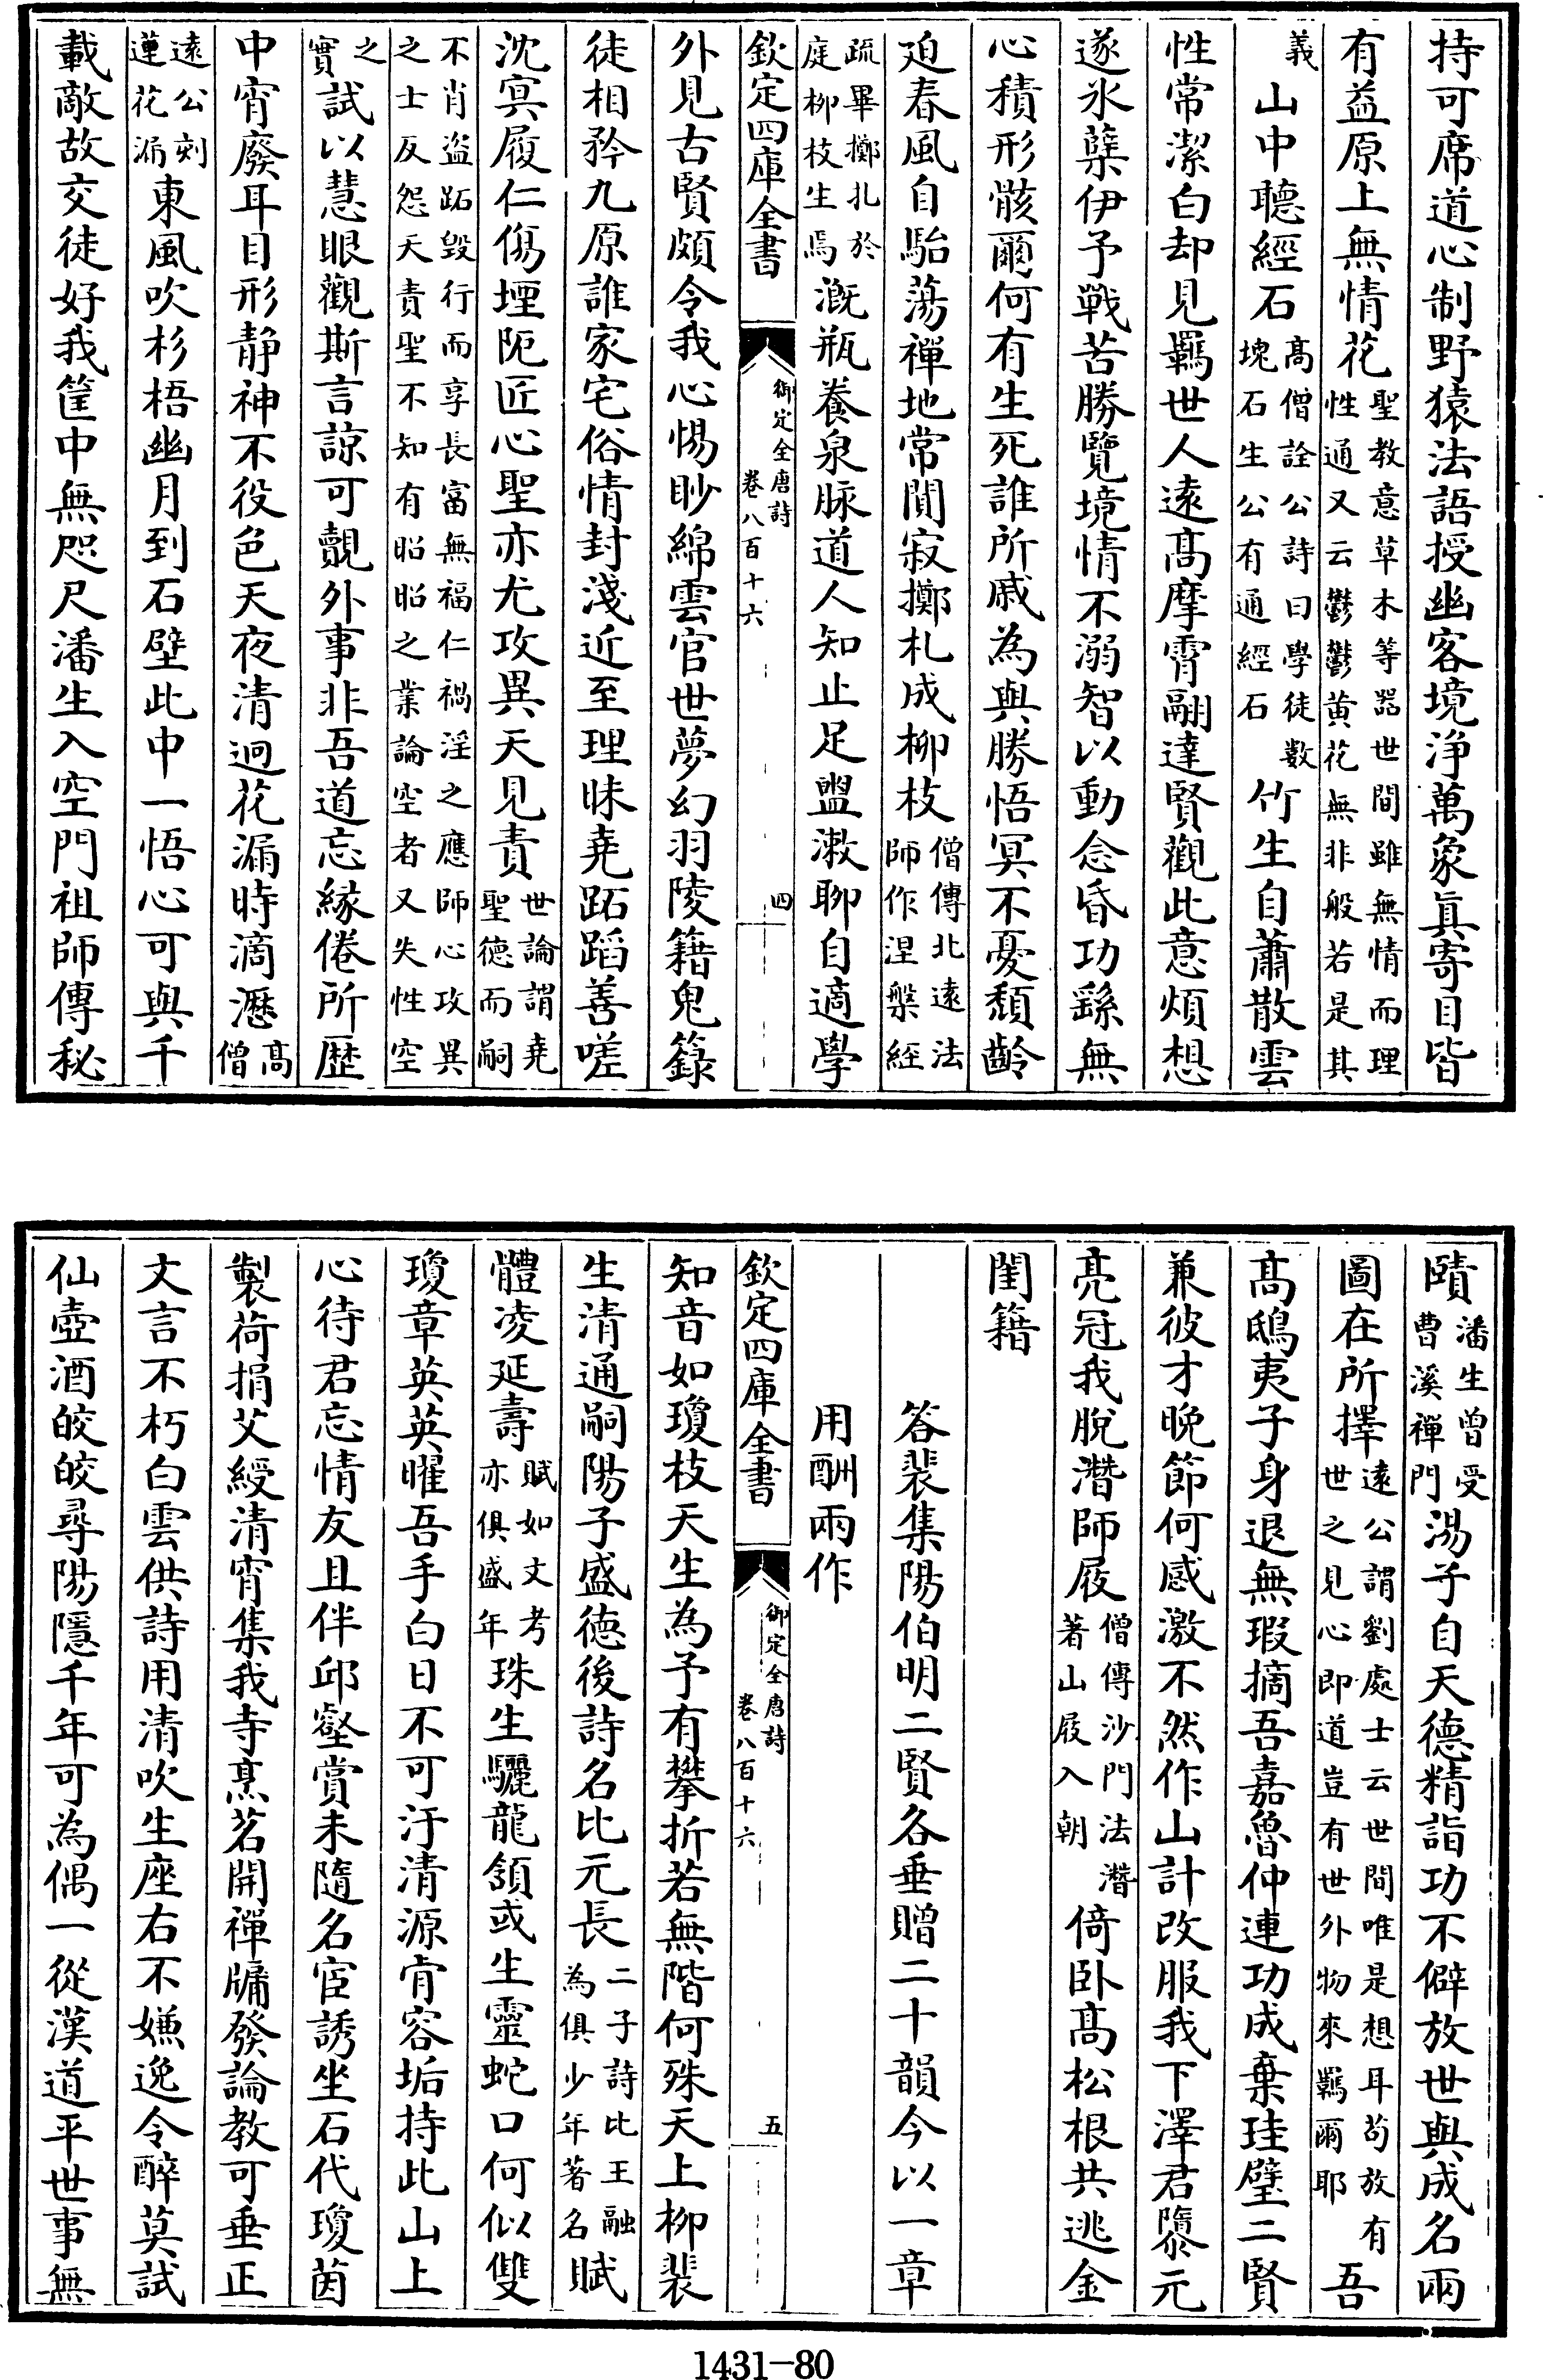 持可席道心制野猿法語授幽客境浄萬象真寄目皆
有益原上無情花聖教意草木等器世間雖無情而理性通又云鬱鬱黄花無非般若是其
義山中聽經石高僧詮公詩曰學徒數塊石生公有通經石竹生自蕭散雲
性常潔白却見羈世人遠高摩霄翮達賢觀此意煩想
遂氷蘖伊予戰苦勝覽境情不溺智以動念昏功繇無
心積形骸爾何有生死誰所戚為與勝悟冥不憂頽齡
迫春風自駘蕩禪地常閒寂擲札成柳枝僧傳北遠法師作涅槃經
疏畢擲札於庭柳枝生焉漑瓶養泉脉道人知止足盥漱聊自適學
欽定四庫全書 御定全唐詩 卷八百十六 四
外見古賢頗令我心惕眇綿雲官世夢幻羽陵籍鬼籙
徒相矜九原誰家宅俗情封淺近至理昧堯跖蹈善嗟
沈㝠履仁傷堙阨匠心聖亦尤攻異天見責世論謂堯聖德而嗣
不肖盗跖毁行而享長富無福仁禍淫之應師心攻異之士反怨天責聖不知有昭昭之業論空者又失性空
之實試以慧眼觀斯言諒可覿外事非吾道忘緣倦所歴
中宵廢耳目形静神不役色天夜清迥花漏時滴瀝高僧
遠公刻蓮花漏東風吹杉梧幽月到石壁此中一悟心可與千
載敵故交徒好我筐中無咫尺潘生入空門祖師傳秘
賾潘生曾受曹溪禪門湯子自天德精詣功不僻放世與成名兩
圖在所擇遠公謂劉處士云世間唯是想耳苟放有世之見心即道豈有世外物來羈爾耶吾
高鴟夷子身退無瑕摘吾嘉魯仲連功成棄珪璧二賢
兼彼才晩節何感激不然作山計改服我下澤君隳元
亮冠我脫濳師屐僧傳沙門法濳著山屐入朝倚卧高松根共逃金
閨籍
答裴集陽伯明二賢各垂贈二十韻今以一章
用酬兩作
欽定四庫全書 御定全唐詩 卷八百十六 五
知音如瓊枝天生為予有攀折若無階何殊天上柳裴
生清通嗣陽子盛徳後詩名比元長二子詩比王融為俱少年著名賦
體凌延壽賦如文考亦俱盛年珠生驪龍頷或生靈蛇口何似雙
瓊章英英曜吾手白日不可汙清源肯容垢持此山上
心待君忘情友且伴邱壑賞未隨名宦誘坐石代瓊茵
製荷捐艾綬清宵集我寺烹茗開禪牖發論教可垂正
文言不朽白雲供詩用清吹生座右不嫌逸令醉莫試
仙壺酒皎皎尋陽隱千年可為偶一從漢道平世事無
1431-80